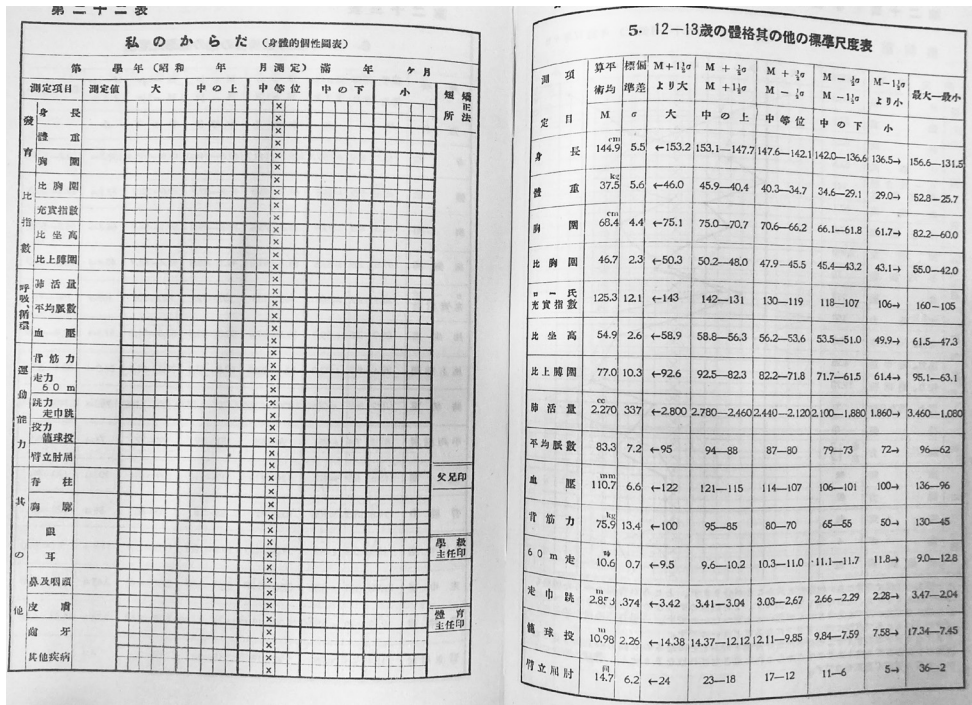 第二十二表
私のからだ (身體的個性圖表)
第 學年(昭和 年 月測定) 滿 年 ヶ月
測定項目 測定値 大 中の上 中等位 中の下 小 短所 矯正法
發育
身長
體重
胸圍
比指數
比胸圍
充實指數
比坐高
比上膊圍
呼吸、循環
肺活量
平均脈數
血壓
運動能力
背筋力
走力 60m
跳力 走巾跳
投力 籠球投
臂立肘屈
其の他
脊柱
胸廓
眼
耳
鼻及咽頭
皮膚
齒牙
其他疾病
父兄印
學級主任印
體育主任印
5. 12—13歳の體格其の他の標準尺度表
測定項目 算平術均M 標偏準差σ M+1½σより大 大 M+½σ M+1½σ 中の上 M+½σ M-½σ 中等位 M-½σ M-1½σ 中の下 M-1½σより小 小 最大—最小
身長 cm 144.9 5.5 ←153.2 153.1—147.7 147.6—142.1 142.0—136.6 136.5→ 156.6—131.5
體重 kg 37.5 5.6 ←46.0 45.9—40.4 40.3—34.7 34.6—29.1 29.0→ 52.8—25.7
胸圍 cm 68.4 4.4 ←75.1 75.0—70.7 70.6—66.2 66.1—61.8 61.7→ 82.2—60.0
比胸圍 46.7 2.3 ←50.3 50.2—48.0 47.9—45.5 45.4—43.2 43.1→ 55.0—42.0
ローレ氏充實指數 125.3 12.1 ←143 142—131 130—119 118—107 106→ 160—105
比坐高 54.9 2.6 ←58.9 58.8—56.3 56.2—53.6 53.5—51.0 49.9→ 61.5—47.3
比上膊圍 77.0 10.3 ←92.6 92.5—82.3 82.2—71.8 71.7—61.5 61.4→ 95.1—63.1
肺活量 cc 2.270 337 ←2.800 2.780—2.460 2.440—2.120 2.100—1.880 1.860→ 3.460—1.080
平均脈數 83.3 7.2 ←95 94—88 87—80 79—73 72→ 96—62
血壓 mm 110.7 6.6 ←122 121—115 114—107 106—101 100→ 136—96
背筋力 kg 75.9 13.4 ←100 95—85 80—70 65—55 50→ 130—45
60m走 秒 10.6 0.7 ←9.5 9.6—10.2 10.3—11.0 11.1—11.7 11.8→ 9.0—12.8
走巾跳 m 2.853 .374 ←3.42 3.41—3.04 3.03—2.67 2.66—2.29 2.28→ 3.47—2.04
籠球投 m 10.98 2.26 ←14.38 14.37—12.12 12.11—9.85 9.84—7.59 7.58→ 17.34—7.45
臂立屈肘 回 14.7 6.2 ←24 23—18 17—12 11—6 5→ 36—2